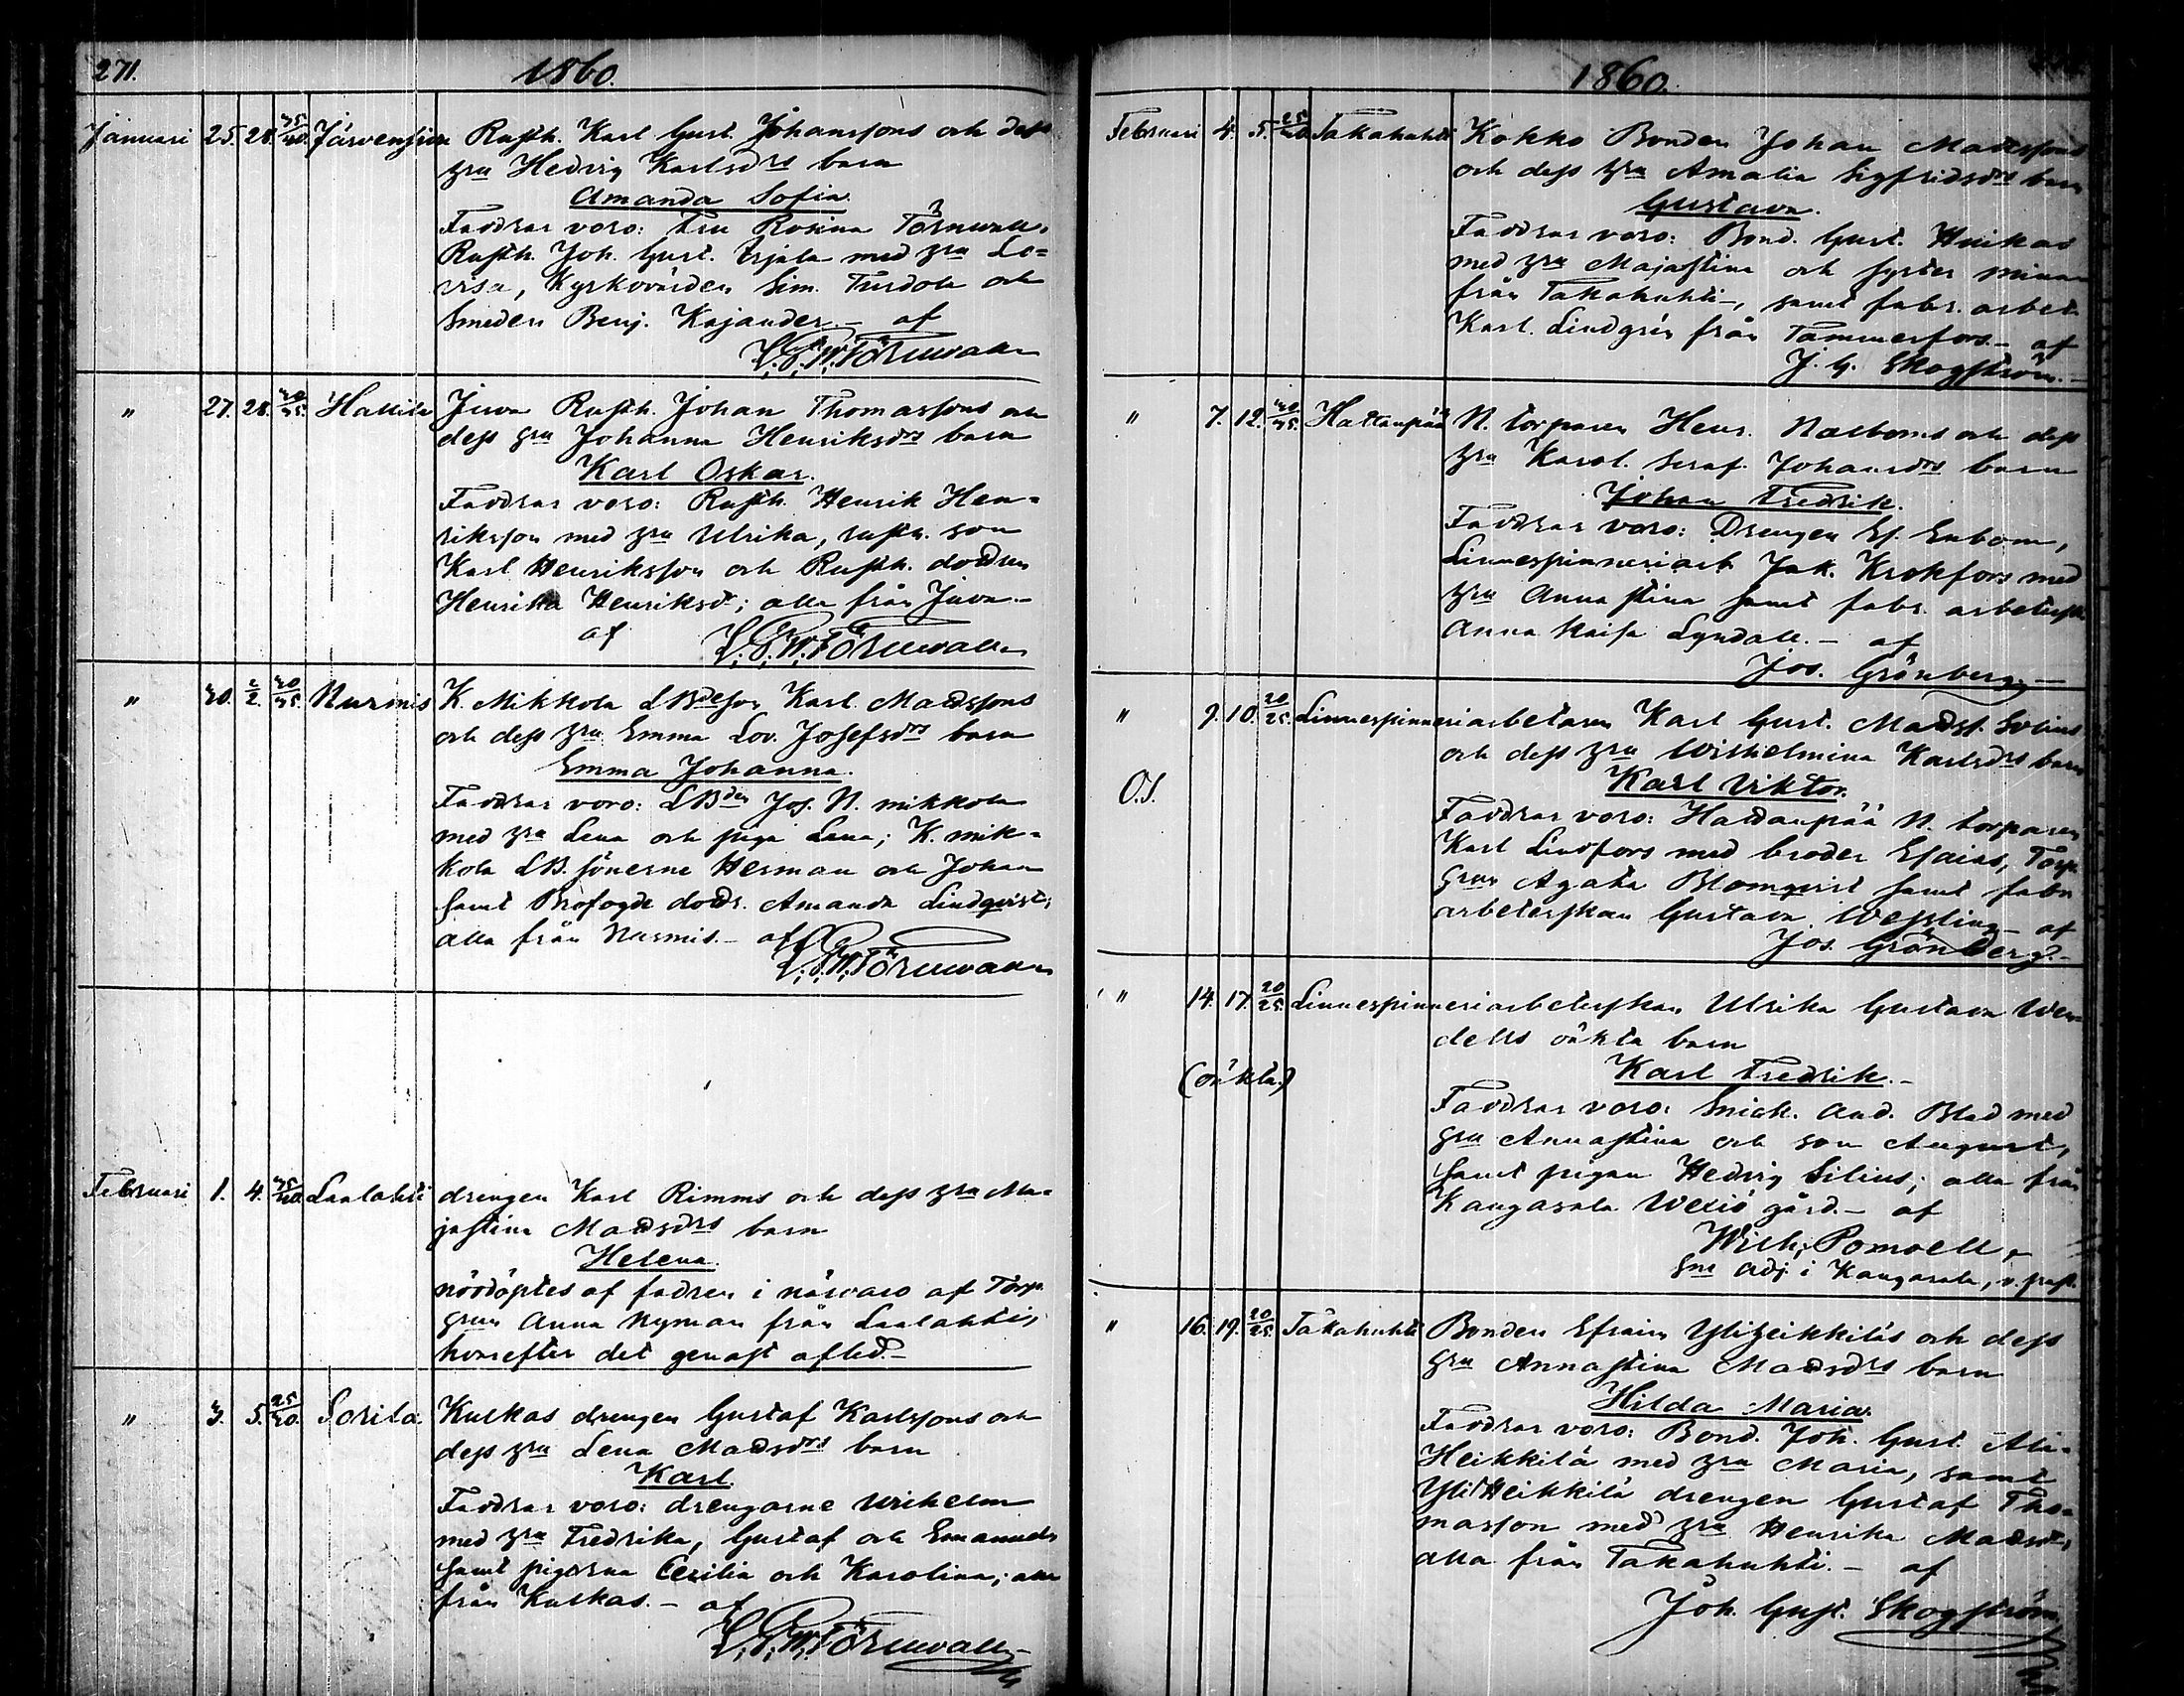 271.
1860.
Januari 25. 28. 35/40. Järvensivu Rusth. Karl Gust. Johanssons och dess
hru Hedvig Karlsdrs barn
Amanda Sofia.
Faddrar voro: Fru Rosina Törnwall,
Rusth. Joh. Gust. Erjala med hru Lo=
visa, Kyrkovärden Sim. Turdola och
Smeden Benj. Kajander. – af
Törnwall
" 27. 28. 30/35. Hallila Juva Rusth. Johan Thomassons och
dess hru Johanna Henriksdrs barn
Karl Oskar.
Faddrar voro: Rusth. Henrik Hen=
riksson med hru Ulrika, rusth. son
Karl Henriksson och Rusth. dottren
Henrika Henriksdr; alla från Juva. –
af Törnwall
" 30. 2/2. 30/35. Nurmis K. Mikkola LBdeson Karl Madssons
och dess hru Emma Lov. Josefsdrs barn
Emma Johanna.
Faddrar voro: LBden Jos. N. Mikkola
med hru Lena och piga Lena; K. Mik=
kola LB. sönerne Herman och Johan
samt Brofogde dottr. Amanda Lindqvist;
alla från Nurmis. – af
Törnwall
Februari 1. 4. 35/40. Laalahti drengen Karl Rimms och dess hru Ma=
jastina Madsdrs barn
Helena.
nöddöptes af fadren i närvaro af Torp.
hrun Anna Nyman från Laalahti,
hvarefter det genast afled. –
" 3. 5. 25/30. Sorila. Kulkas drengen Gustaf Karlssons och
dess hru Lena Madsdrs barn
Karl.
Faddrar voro: drengarne Wilhelm
med hru Fredrika, Gustaf och Emanuel
samt pigorna Cecilia och Karolina; alla
från Kulkas. – af
Törnwall
1860.
Februari 4. 5. 25/30. Takahuhti Kokko Bonden Johan Madssons
och dess hru Amalia Sigfridsdrs barn
Gustava.
Faddrar voro: Bond. Gust. Huikas
med hru Majastina och syster Mina
från Takahuhti –, samt fabr. arbet.
Karl. Lindgrén från Tammerfors. – af
J. G. Skogström. –
" 7. 12. 30/35. Hattanpää N. torparen Henr. Nalboms och dess
hru Karol. Seraf. Johansdrs barn
Johan Fredrik.
Faddrar voro: Drengen Ef. Enbom,
Linnespinneriarb. Jak. Krokfors med
hru Anna Stina samt fabr. arbetersk.
Anna Kaisa Lyndall. – af
Jos. Grönberg. –
" 9. 10. 20/25. Linnespinneriarbetaren Karl Gust. Madss. Solins
och dess hru Wilhelmina Karlsdrs barn
Karl Viktor.
O.S.
Faddrar voro: Hattanpää N. torparen
Karl Lindfors med broder Esaias, Torp.
hrun Agata Blomqvist samt fabr.
arbeterskan Gustava Wessling – af
Jos. Grönberg. –
" 14. 17. 20/25. Linnespinneriarbeterskan Ulrika Gustava Wen=
dells oäkta barn
Karl Fredrik. –
(oäkta)
Faddrar voro: Snick. And. Blad med
hru Annastina och son August,
samt pigan Hedvig Silius; alla från
Kangasala Wexiö gård. – af
Wilh. Pomoell,
Sne adj. i Kangasala, v. past.
" 16. 19. 20/25. Takahuhti Bonden Efraim Yliheikkiläs och dess
hru Annastina Madsdrs barn
Hilda Maria.
Faddrar voro: Bond. Joh. Gust. Ali=
Heikkilä med hru Maria, samt
YliHeikkilä drengen Gustaf Tho=
masson med hru Henrika Madsdr,
alla från Takahuhti. – af
Joh. Gust. Skogström